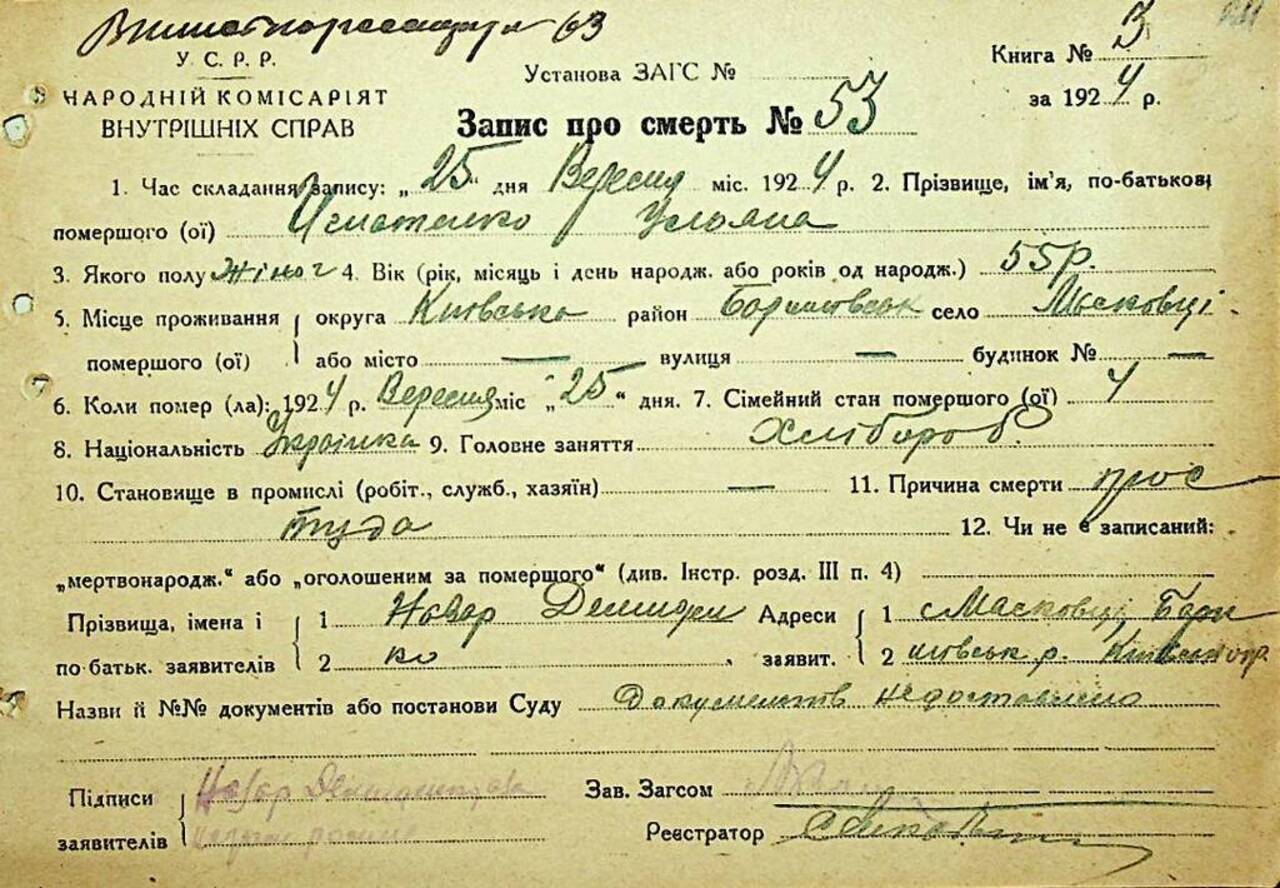 63
У. С. Р. Р.
НАРОДНІЙ КОМІСАРІЯТ
ВНУТРІШНІХ СПРАВ
Установа ЗАГС №
Книга № 3
за 1924 р.
Запис про смерть № 53
1. Час складання запису: „25“ дня Вересня міс. 1924 р. 2. Прізвище, ім'я, по-батькові
помершого (ої) Уляна
3. Якого полу Жіноч 4. Вік (рік, місяць і день народж. або років од народж.) 55р.
5. Місце проживання округа Київська район село Масковці
помершого (ої) або місто — вулиця — будинок № —
6. Коли помер (ла): 1924 р. Вересня міс „25“ дня. 7. Сімейний стан помершого (ої) 4
8. Національність Українка 9. Головне заняття Хлібороб.
10. Становище в промислі (робіт., служб., хазяїн) — 11. Причина смерти прос
туда 12. Чи не є записаний:
„мертвонародж.“ або „оголошеним за помершого“ (див. Інстр. розд. III п. 4)
Прізвища, імена і 1 Назар Адреси 1 с Масковці
по батьк. заявителів 2 ко заявит. 2 р.
Назви й №№ документів або постанови Суду Документів недоставлено
Підписи Назар
заявителів
Зав. Загсом
Реєстратор